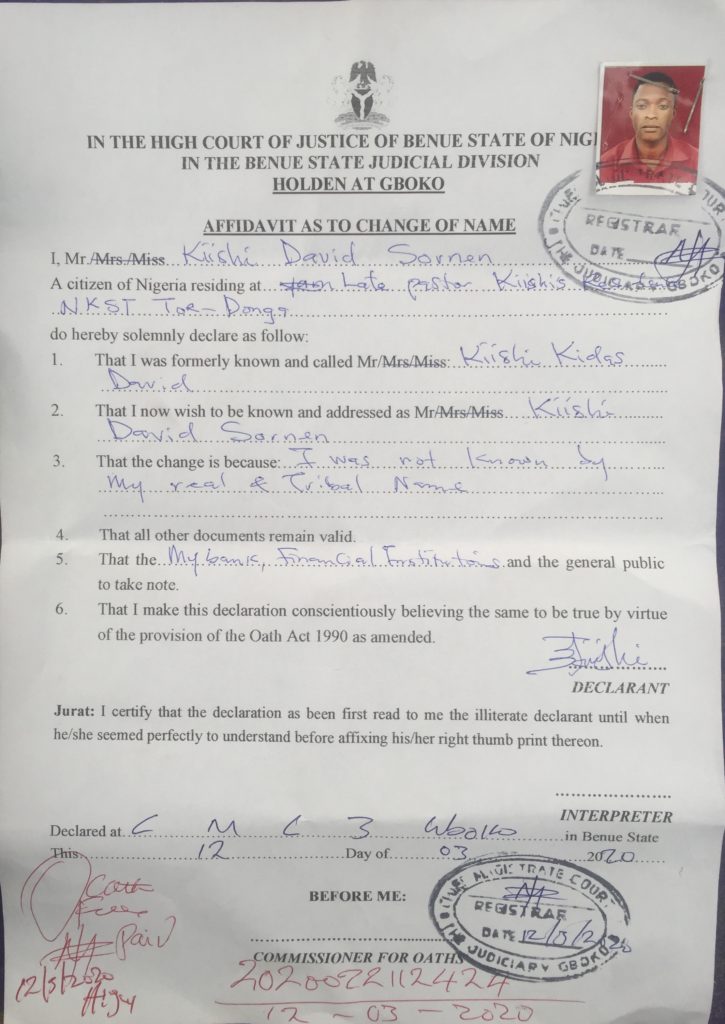 IN THE HIGH COURT OF JUSTICE OF BENUE STATE OF NIG
IN THE BENUE STATE JUDICIAL DIVISION
HOLDEN AT GBOKO
REGISTRAR
DATE
THE JUDICIARY GBOKO
AFFIDAVIT AS TO CHANGE OF NAME
I, Mr./Mrs./Miss. Kiishi David Sornen
A citizen of Nigeria residing at Late pastor Kiishi's
NKST Tse-Donga
do hereby solemnly declare as follow:
1. That I was formerly known and called Mr/Mrs/Miss: Kiishi Kidas
David
2. That I now wish to be known and addressed as Mr/Mrs/Miss Kiishi
David Sornen
3. That the change is because: I was not known by
My real & Tribal Name
4. That all other documents remain valid.
5. That the My bank, Financial Institutions and the general public
to take note.
6. That I make this declaration conscientiously believing the same to be true by virtue
of the provision of the Oath Act 1990 as amended.
Kiishi
DECLARANT
Jurat: I certify that the declaration as been first read to me the illiterate declarant until when
he/she seemed perfectly to understand before affixing his/her right thumb print thereon.
INTERPRETER
Declared at C M C 3 Gboko in Benue State
This 12 Day of 03 2020
Oath
Fee
Paid
12/3/2020
BEFORE ME:
MAGISTRATE COUR
REGISTRAR
DATE 12/3/2020
THE JUDICIARY GBOKO
COMMISSIONER FOR OATHS
2020022112424
12-03-2020